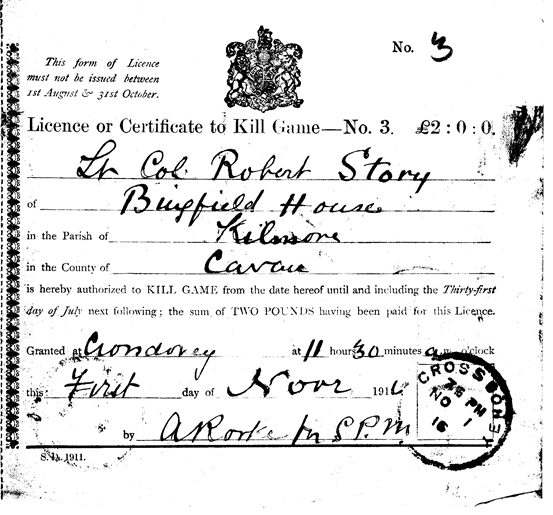 No. 3
This form of Licence
must not be issued between
1st August & 31st October.
Licence or Certificate to Kill Game—No. 3. £2:0:0.
Lt Col Robert Story
of Bingfield House
in the Parish of Kilmore
in the County of Cavan
is hereby authorized to KILL GAME from the date hereof until and including the Thirty-first
day of July next following; the sum of TWO POUNDS having been paid for this Licence.
Granted at at 11 hours 30 minutes a.m. o'clock
this First day of Novr 191
by A Rorke for S.P.M.
CROSSDONEY
PM
NO 1
16
S. 1911.